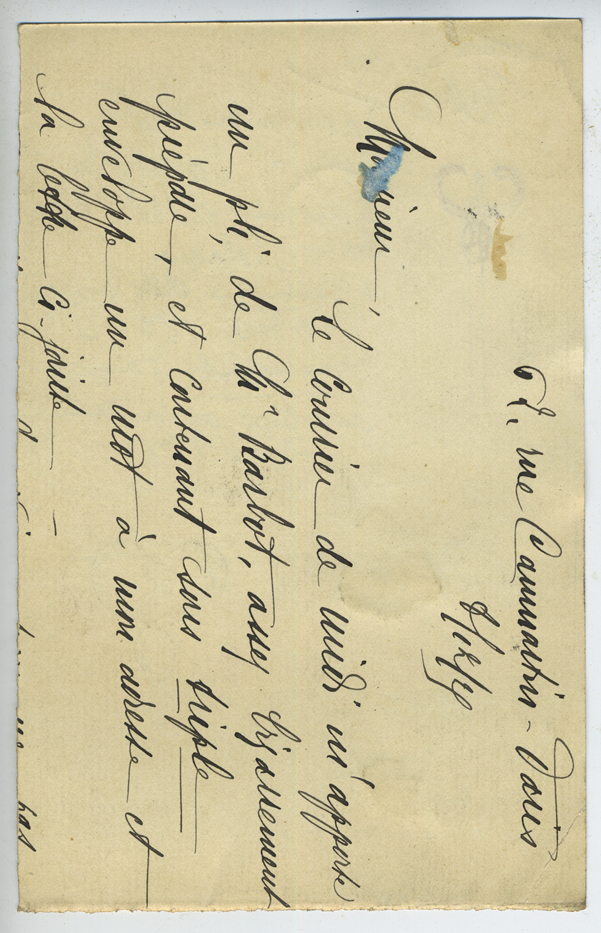 62, rue Caumartin - Paris
Monsieur,
Le Courrier de midi m'apporte
un pli de Mr Barbot, assez bizarrement
préparé, et contenant sous triple
enveloppe un mot à mon adresse et
la lettre ci-jointe -
pas